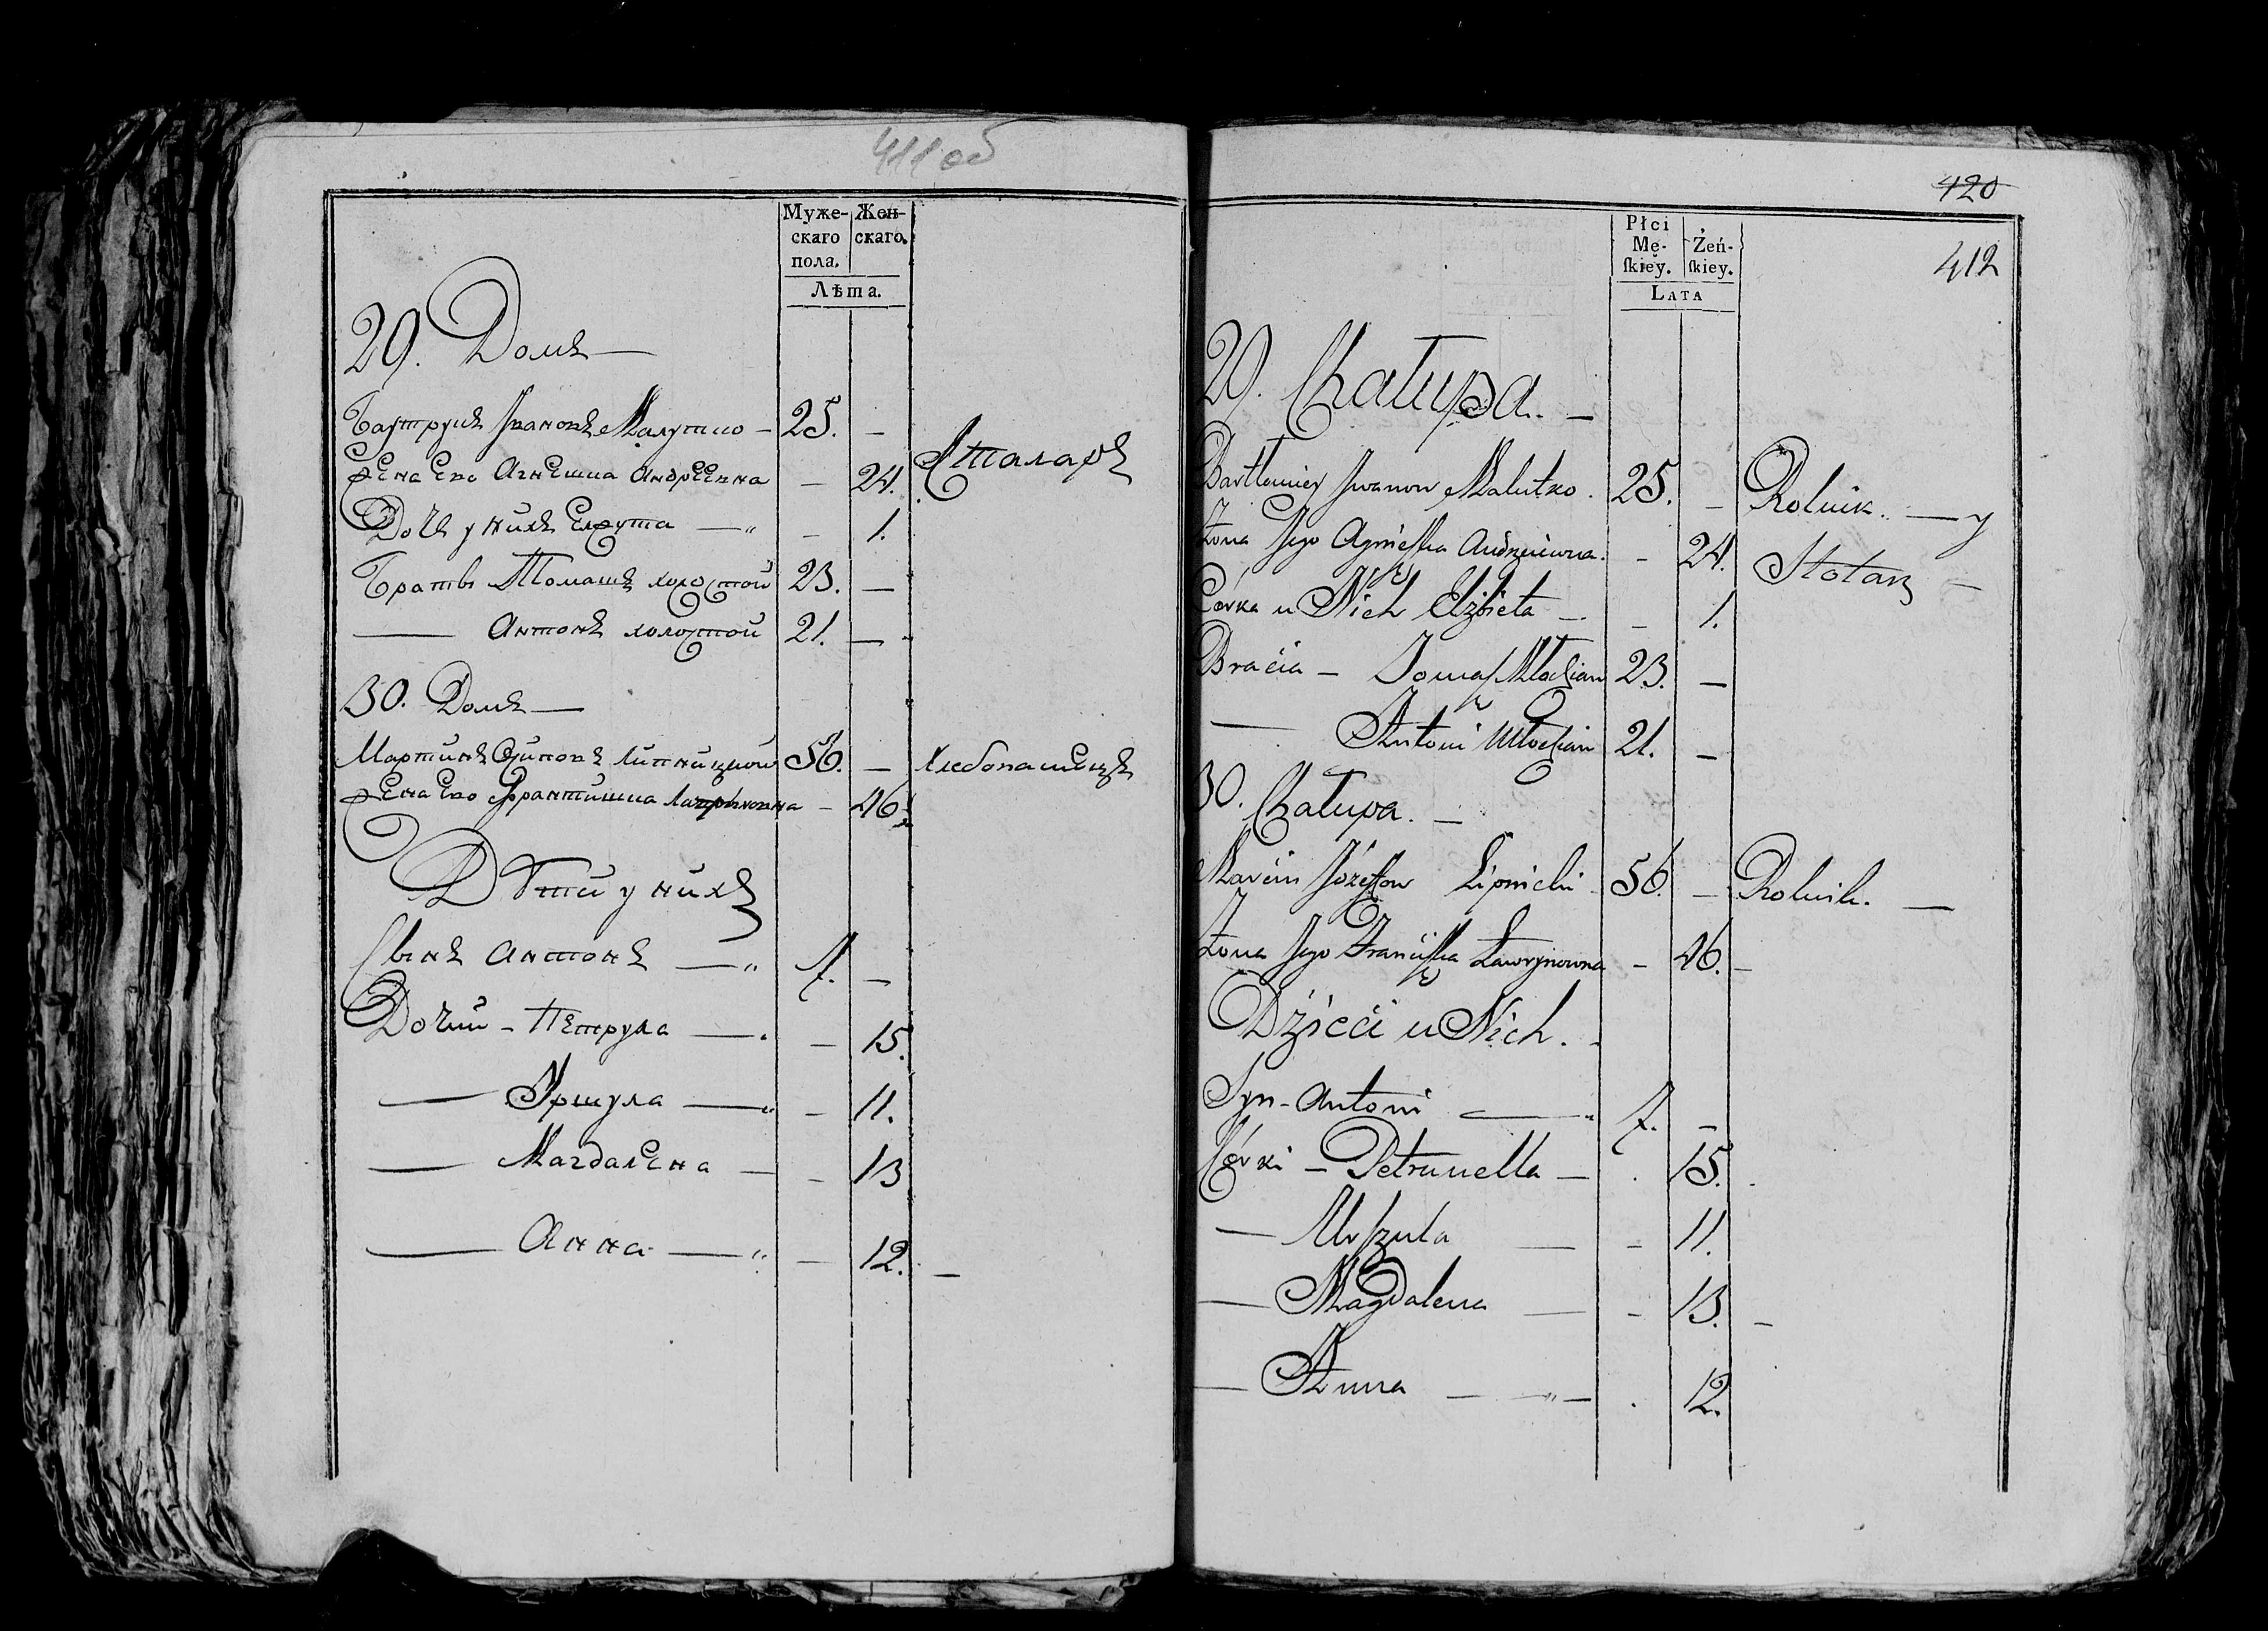 411 об
Муже- Жен-
скаго скаго.
пола.
Лѣта.
29. Домъ —
Баутрукъ Ивановъ Малутко — 25. —
Жена Его Агнешка Андреевна — 24. Сталаръ
Дочь у нихъ Елжута — „ — 1.
Братьи Томашъ холостой 23. —
— Антонъ холостой 21. —
30. Домъ —
Мартинъ Липницкой 56. — Хлебопашецъ
Жена Его Францишка — 46.
Дѣти у нихъ
Сынъ Антонъ — „ 7. —
Дочки - Петруля — . — 15.
— Уршуля — „ — 11.
— Магдалена — — 13
— Анна — „ — 12. —
420
412
Płci
Mę- Żeń-
ſkiey. ſkiey.
LATA
29. Chałupa. —
Bartłomiey Jwanow Malutko. 25. — Rolnik. — y
Żona Jego Agnieſzka Andrzeiewna. - 24. Stolarz —
Córka u Nich Elżbieta — - 1.
Bracia — Tomaſz Młodzian 23. —
— Antoni Młodzian 21. —
30. Chałupa. —
Marcin Józefow Lipnicki 56. — Rolnik. —
Żona Jego Franciſzka Ławrynowna - 46. —
Dzieci u Nich.
Syn - Antoni — 7. —
Córki — Petrunella — . 15.
— Urſzula — - 11.
— Magdalena — - 13. —
— Anna — „ — . 12.